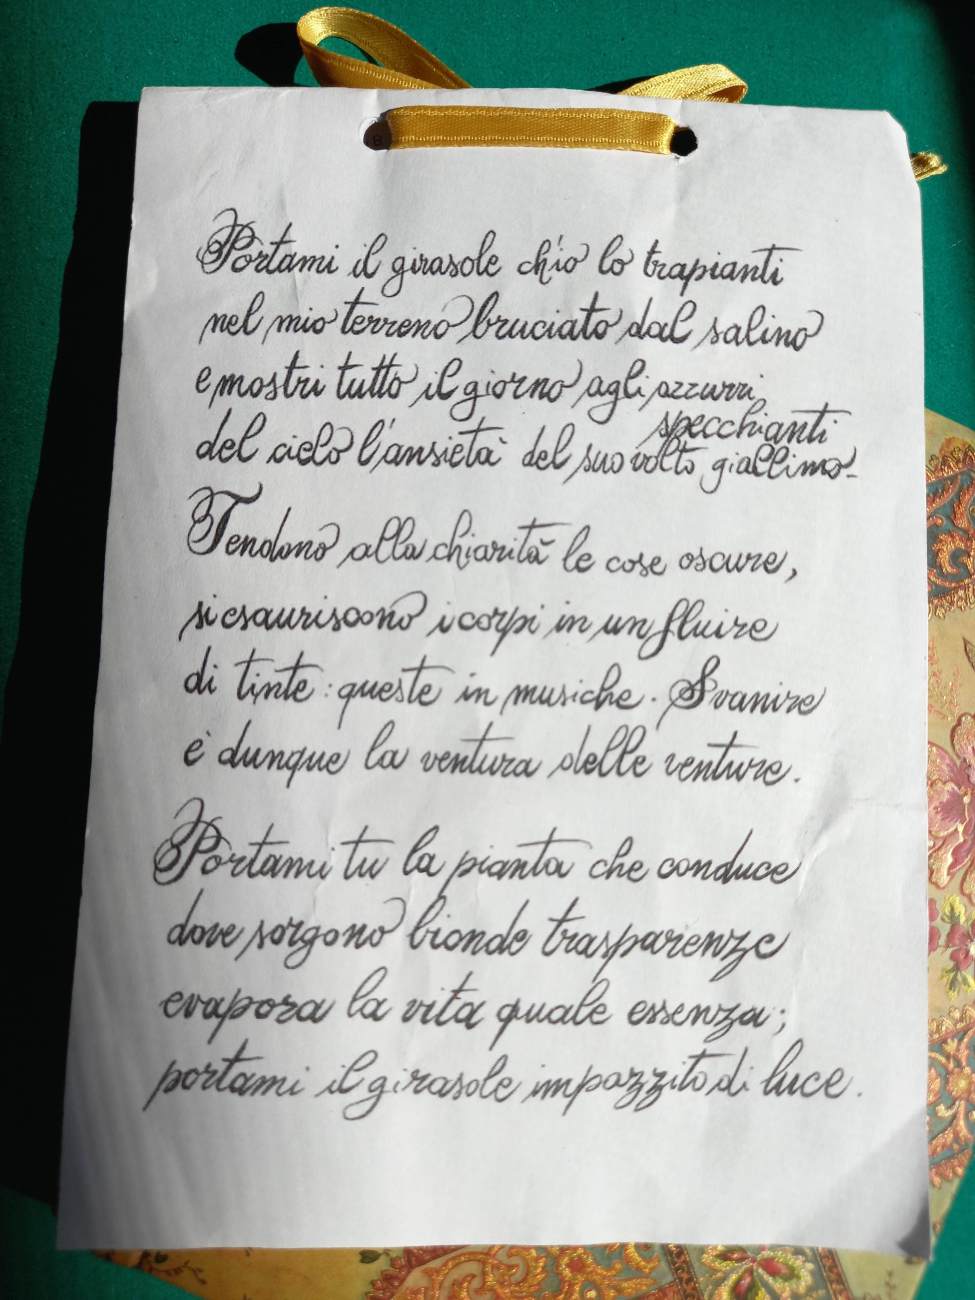 Portami il girasole ch'io lo trapianti
nel mio terreno bruciato dal salino
e mostri tutto il giorno agli azzurri
specchianti
del cielo l'ansietà del suo volto giallino.
Tendono alla chiarità le cose oscure,
si esauriscono i corpi in un fluire
di tinte: queste in musiche. Svanire
è dunque la ventura delle venture.
Portami tu la pianta che conduce
dove sorgono bionde trasparenze
evapora la vita quale essenza;
portami il girasole impazzito di luce.